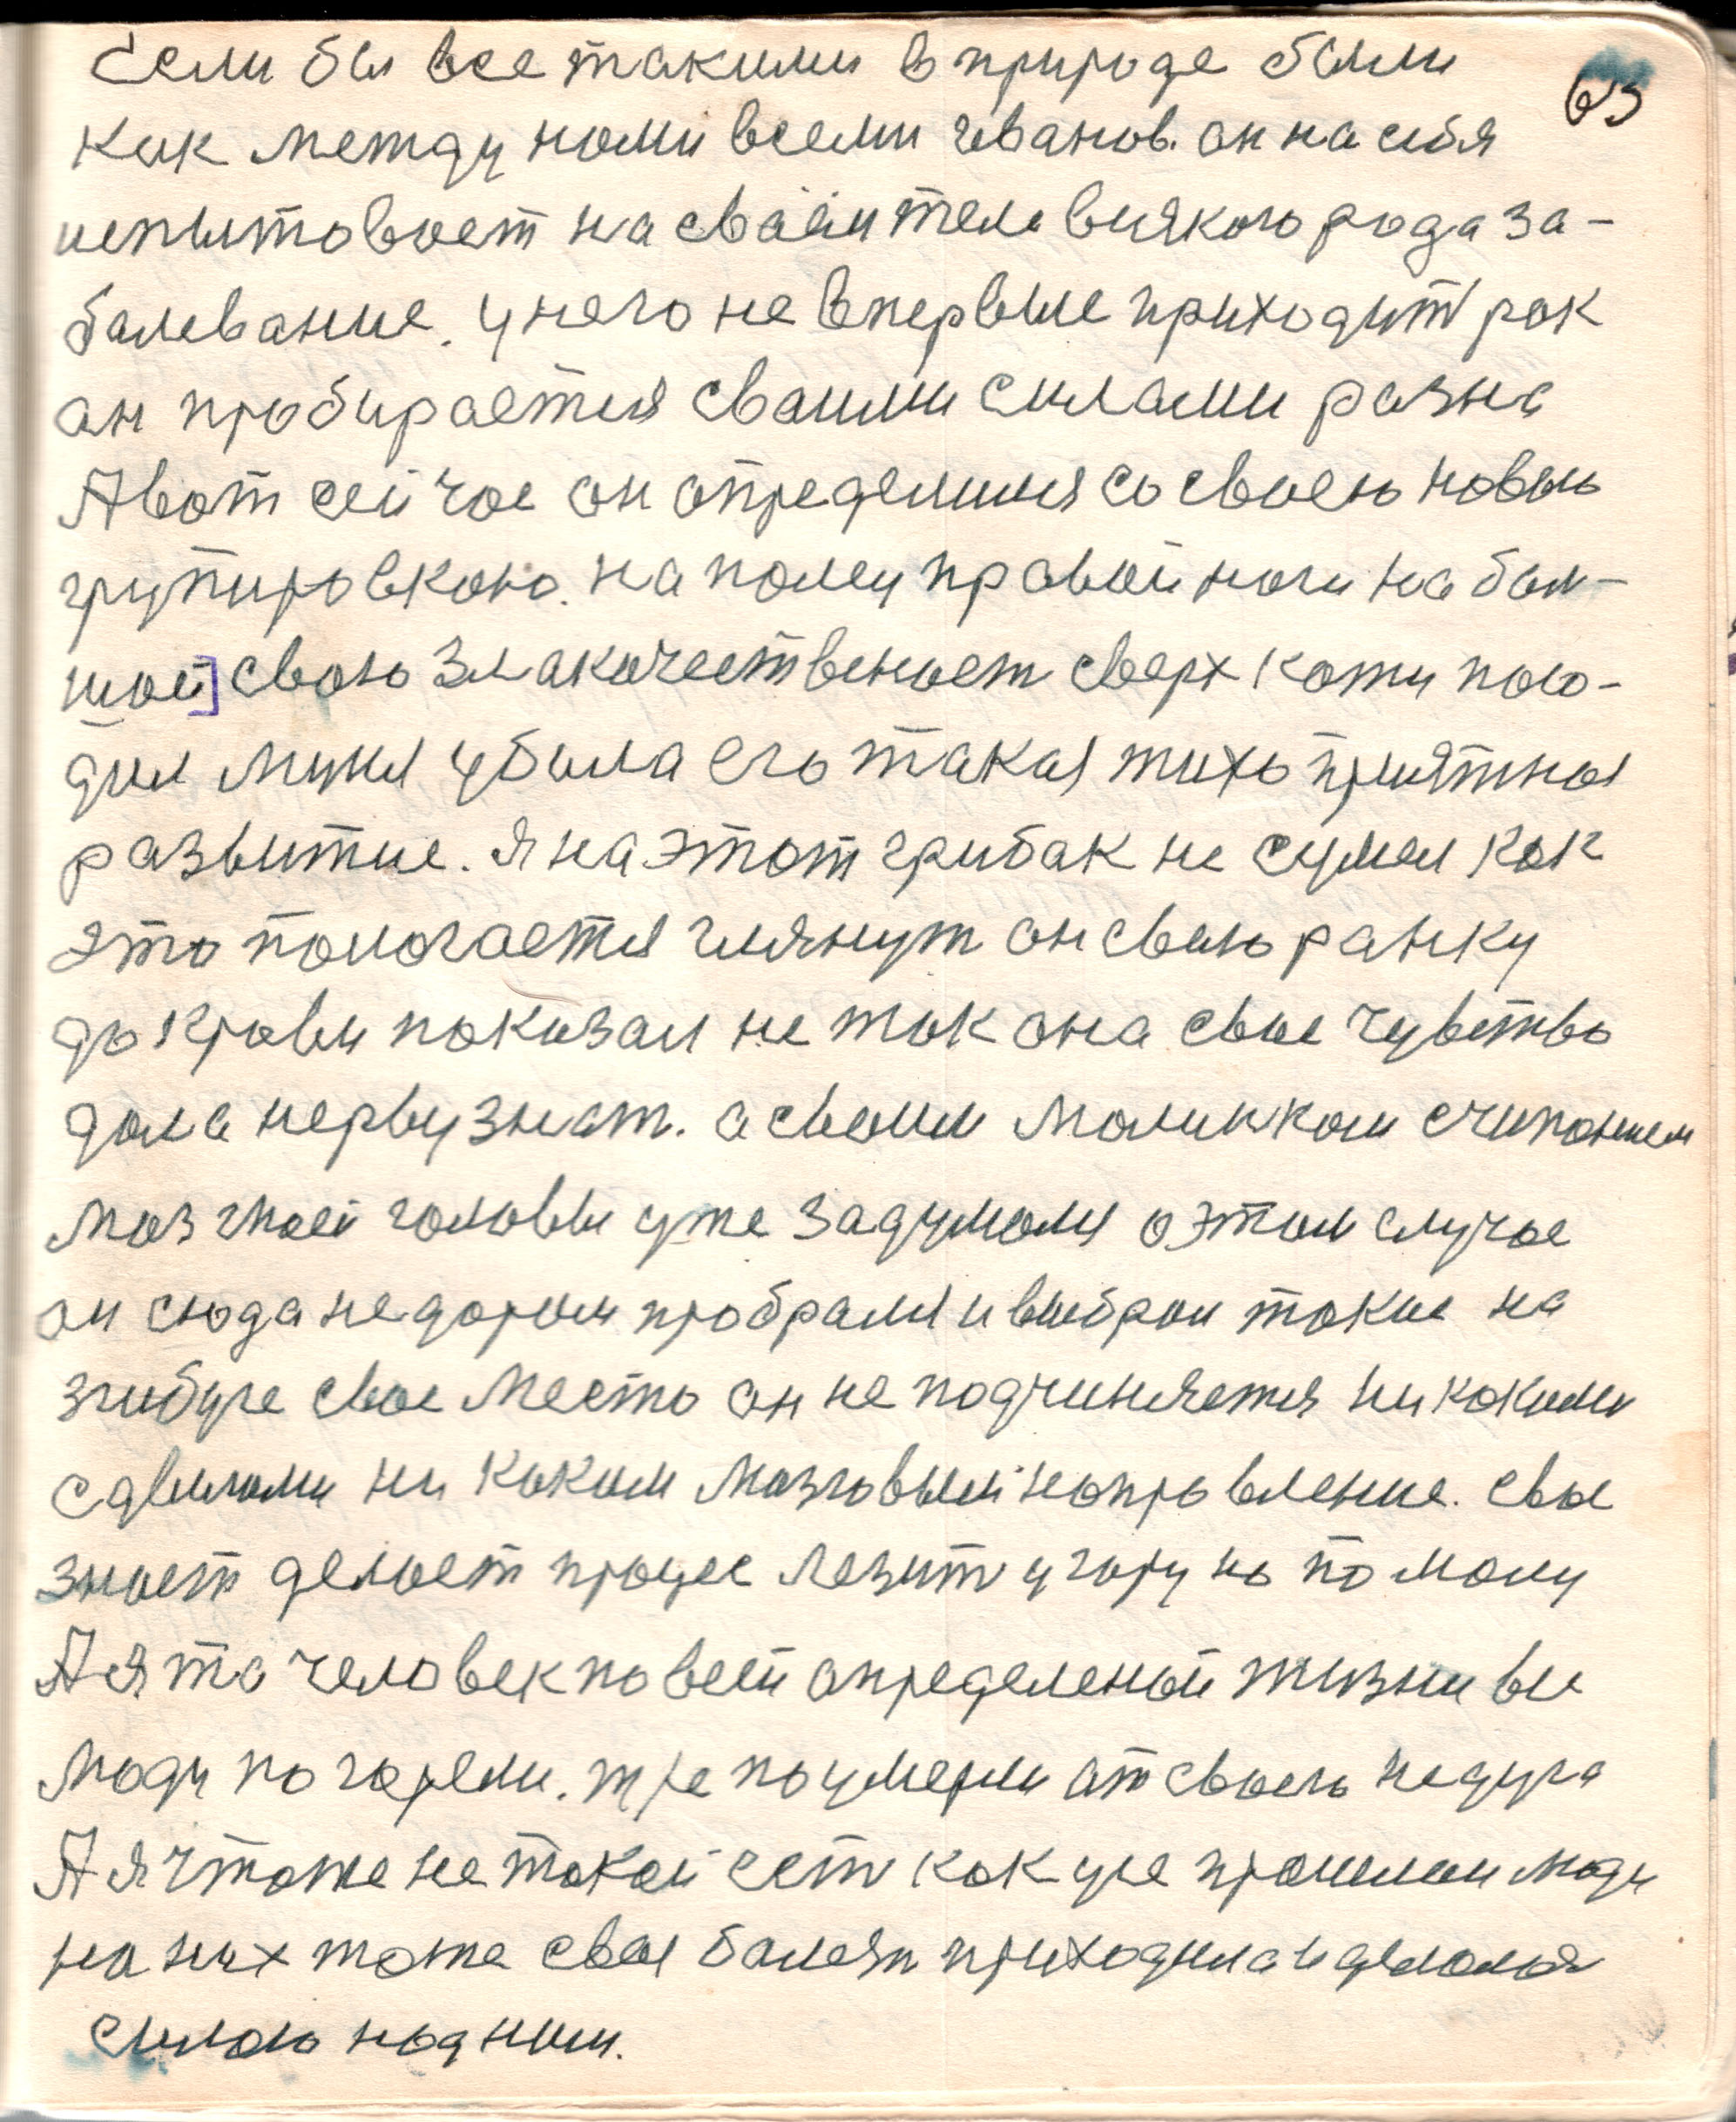 Если бы все такими в природе были
63
как между нами всеми иванов. он на себя
испытовает на сваём теле всякого рода за-
балевание. у него не впервые приходит рак
он пробирается сваими силами разна
А вот сейчас он определился со своею новою
групировкою. на полцу правой ноги на бол-
шой] свою злакачествиност сверх кожи поса-
дил мине убыла его такая тихо приятная
развитие. я на этот грибак не сумел как
это пологается глянут он свою ранку
до крови показал не так она свое чувство
дала нерву знат. а своим малинким счипанием
мозг моей головы уже задумался о этом случае
он сюда не даром пробрался и выбрал такие на
згибуле свое место он не подчиняется ни какими
сдвигами ни каким мозговым направление. свое
знает делает процес лезит угору но по малу
А я та человек по всей определеной жизни все
люди погорели. тже поумерли от своего недуга
А я что же не такой ест как уле прошлом люди
на них тоже своя балезн приходила и делалася
силою над ними.